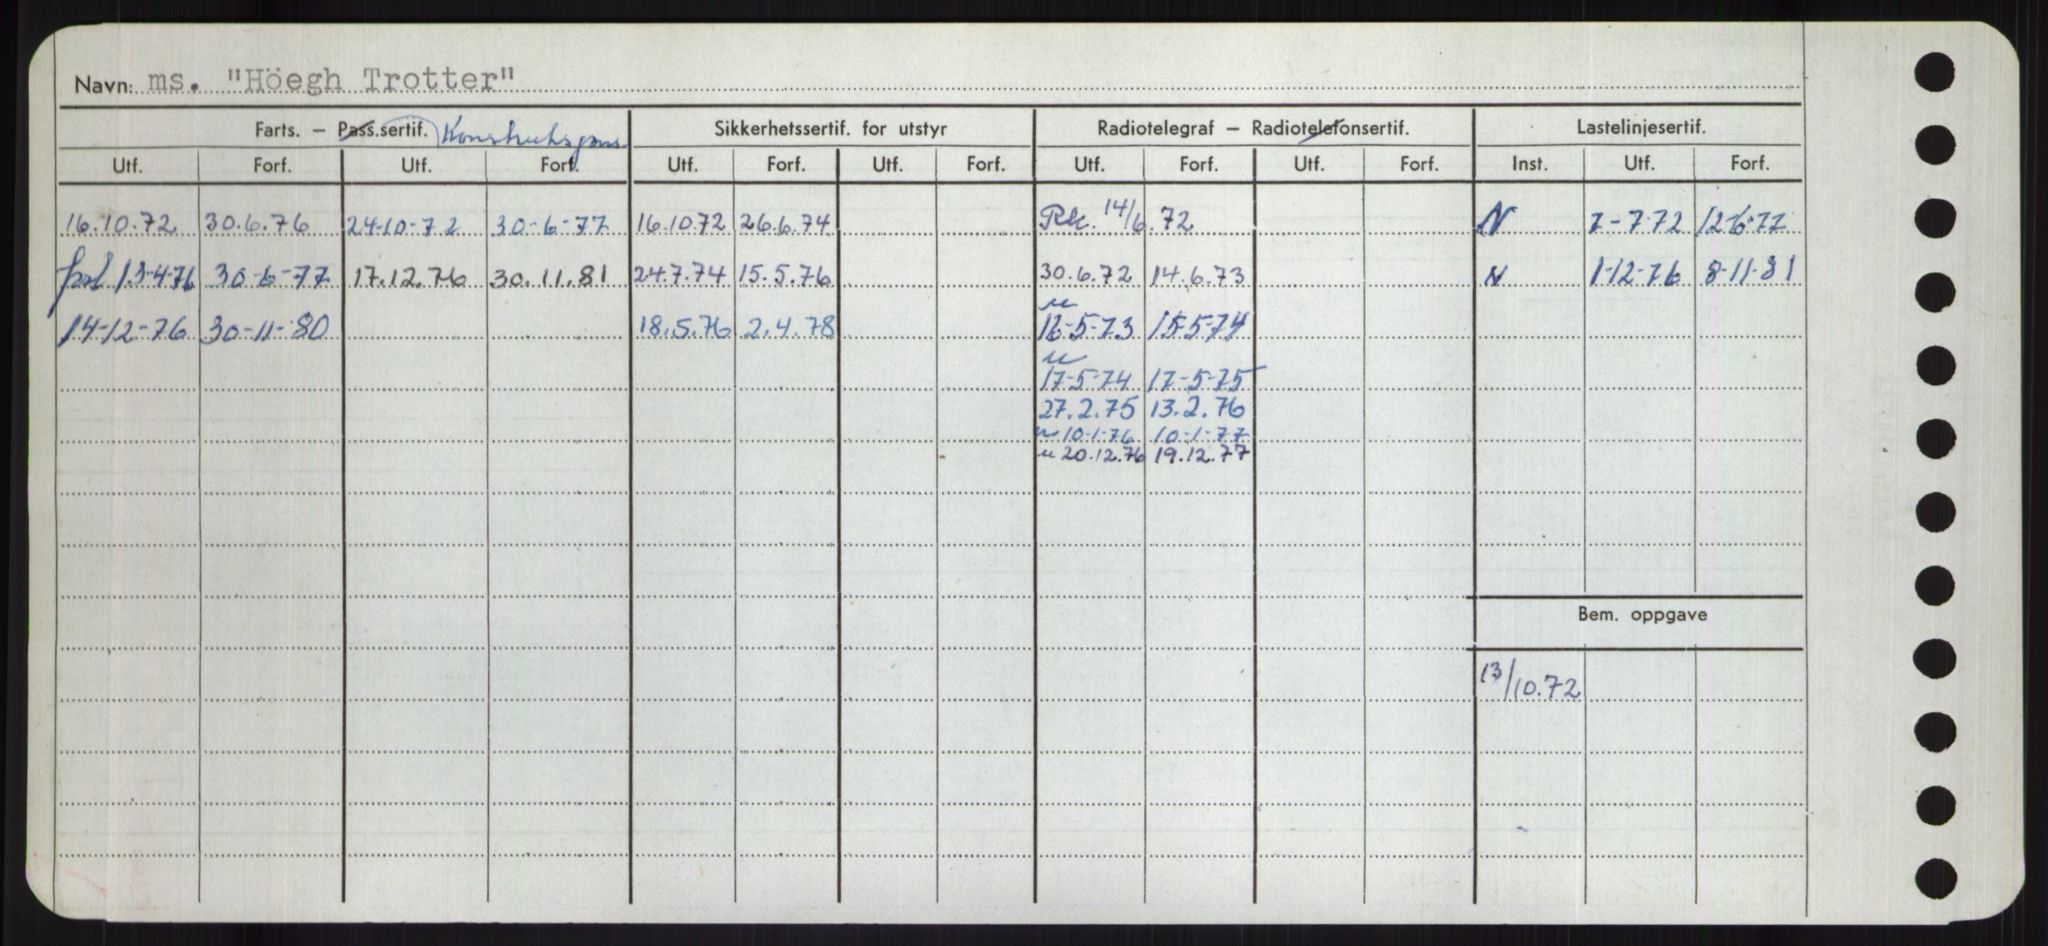 Navn: ms. "Höegh Trotter"
Farts. — Pass.sertif. Konstruksjons Sikkerhetssertif. for utstyr Radiotelegraf — Radiotelefonsertif. Lastelinjesertif.
Utf. Forf. Utf. Forf. Utf. Forf. Utf. Forf. Utf. Forf. Utf. Forf. Inst. Utf. Forf.
16.10.72 30.6.76 24-10-72 30-6-77 16.10.72 26.6.74 Rk. 14/6.72 N 7-7-72 12-6-77
13-4-76 30-6-77 17.12.76 30.11.81 24.7.74 15.5.76 30.6.72 14.6.73 N 1-12-76 8-11-81
14-12-76 30-11-80 18.5.76 2.4.78 16-5-73 15-5-74
17-5-74 17-5-75
27.2.75 13.2.76
10-1-76 10-1-77
20.12.76 19.12.77
Bem. oppgave
13/10.72